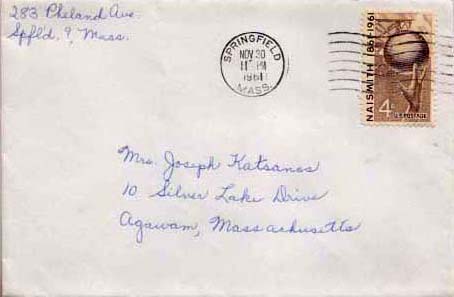 283 Pheland Ave.
Spfl'd. 9, Mass.
SPRINGFIELD
NOV 30
11 PM
1961
MASS.
NAISMITH 1861-1961
4¢
U.S. POSTAGE
Mrs. Joseph Katsanos
10 Silver Lake Drive
Agawam, Massachusetts